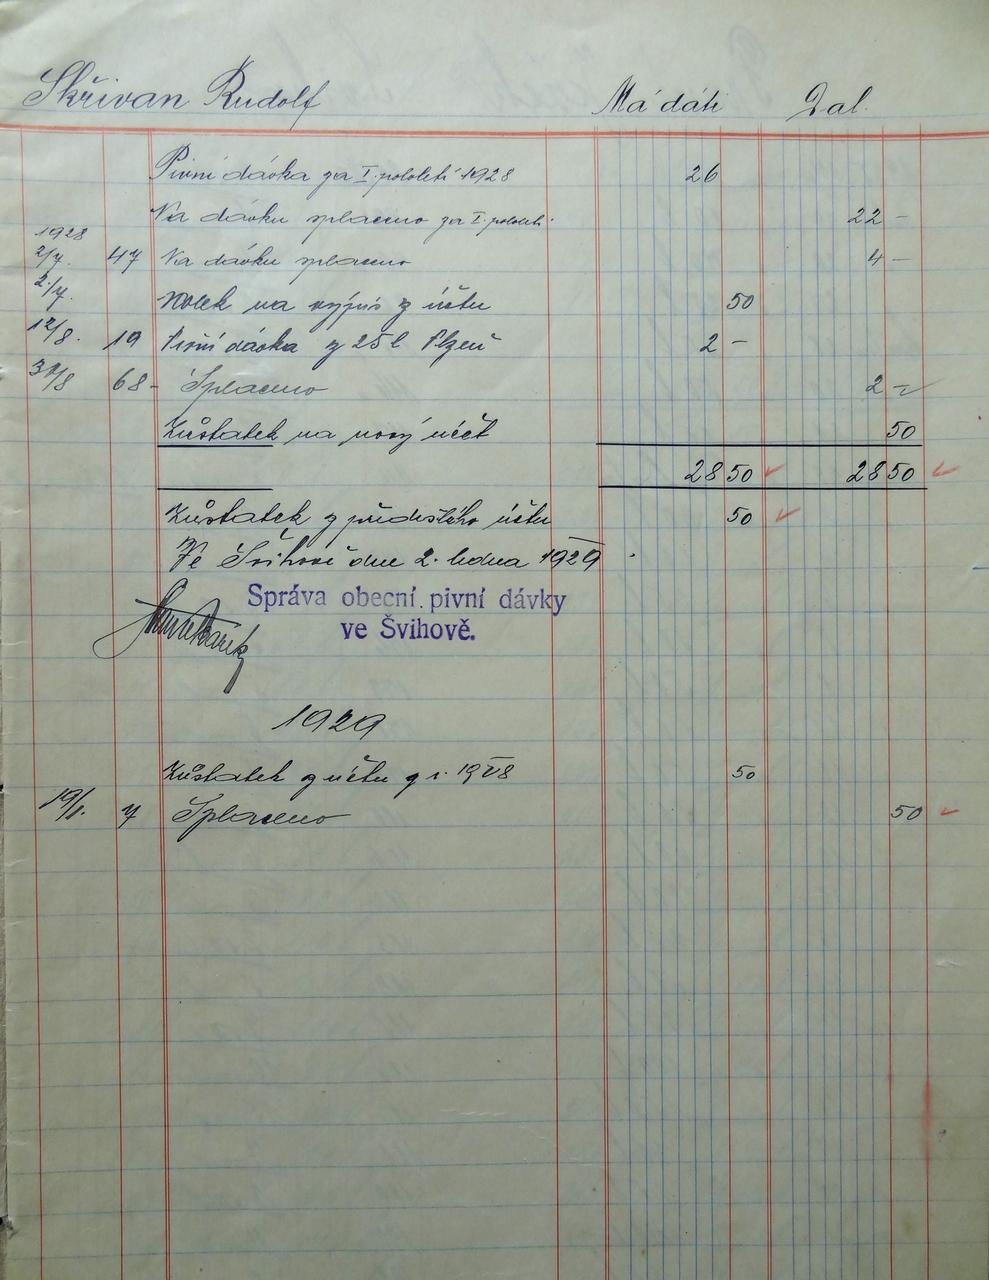 Skřivan Rudolf Má dáti Dal.
Pivní dávka za I. pololetí 1928 26
Na dávku splaceno za I. pololetí 22 -
1928
2/7. 47 Na dávku splaceno 4 -
2./7. Kolek na výpis z účtu 50
12/8. 19 Pivní dávka z 25 l Plzeň 2 -
30/8 68 - Splaceno 2 =
Zůstatek na nový účet 50
28 50 28 50
Zůstatek z předešlého účtu 50
Ve Švihově dne 2. ledna 1929.
Správa obecní pivní dávky
ve Švihově.
1929
Zůstatek z účtu z r. 1928 50
19/1. 7 Splaceno 50